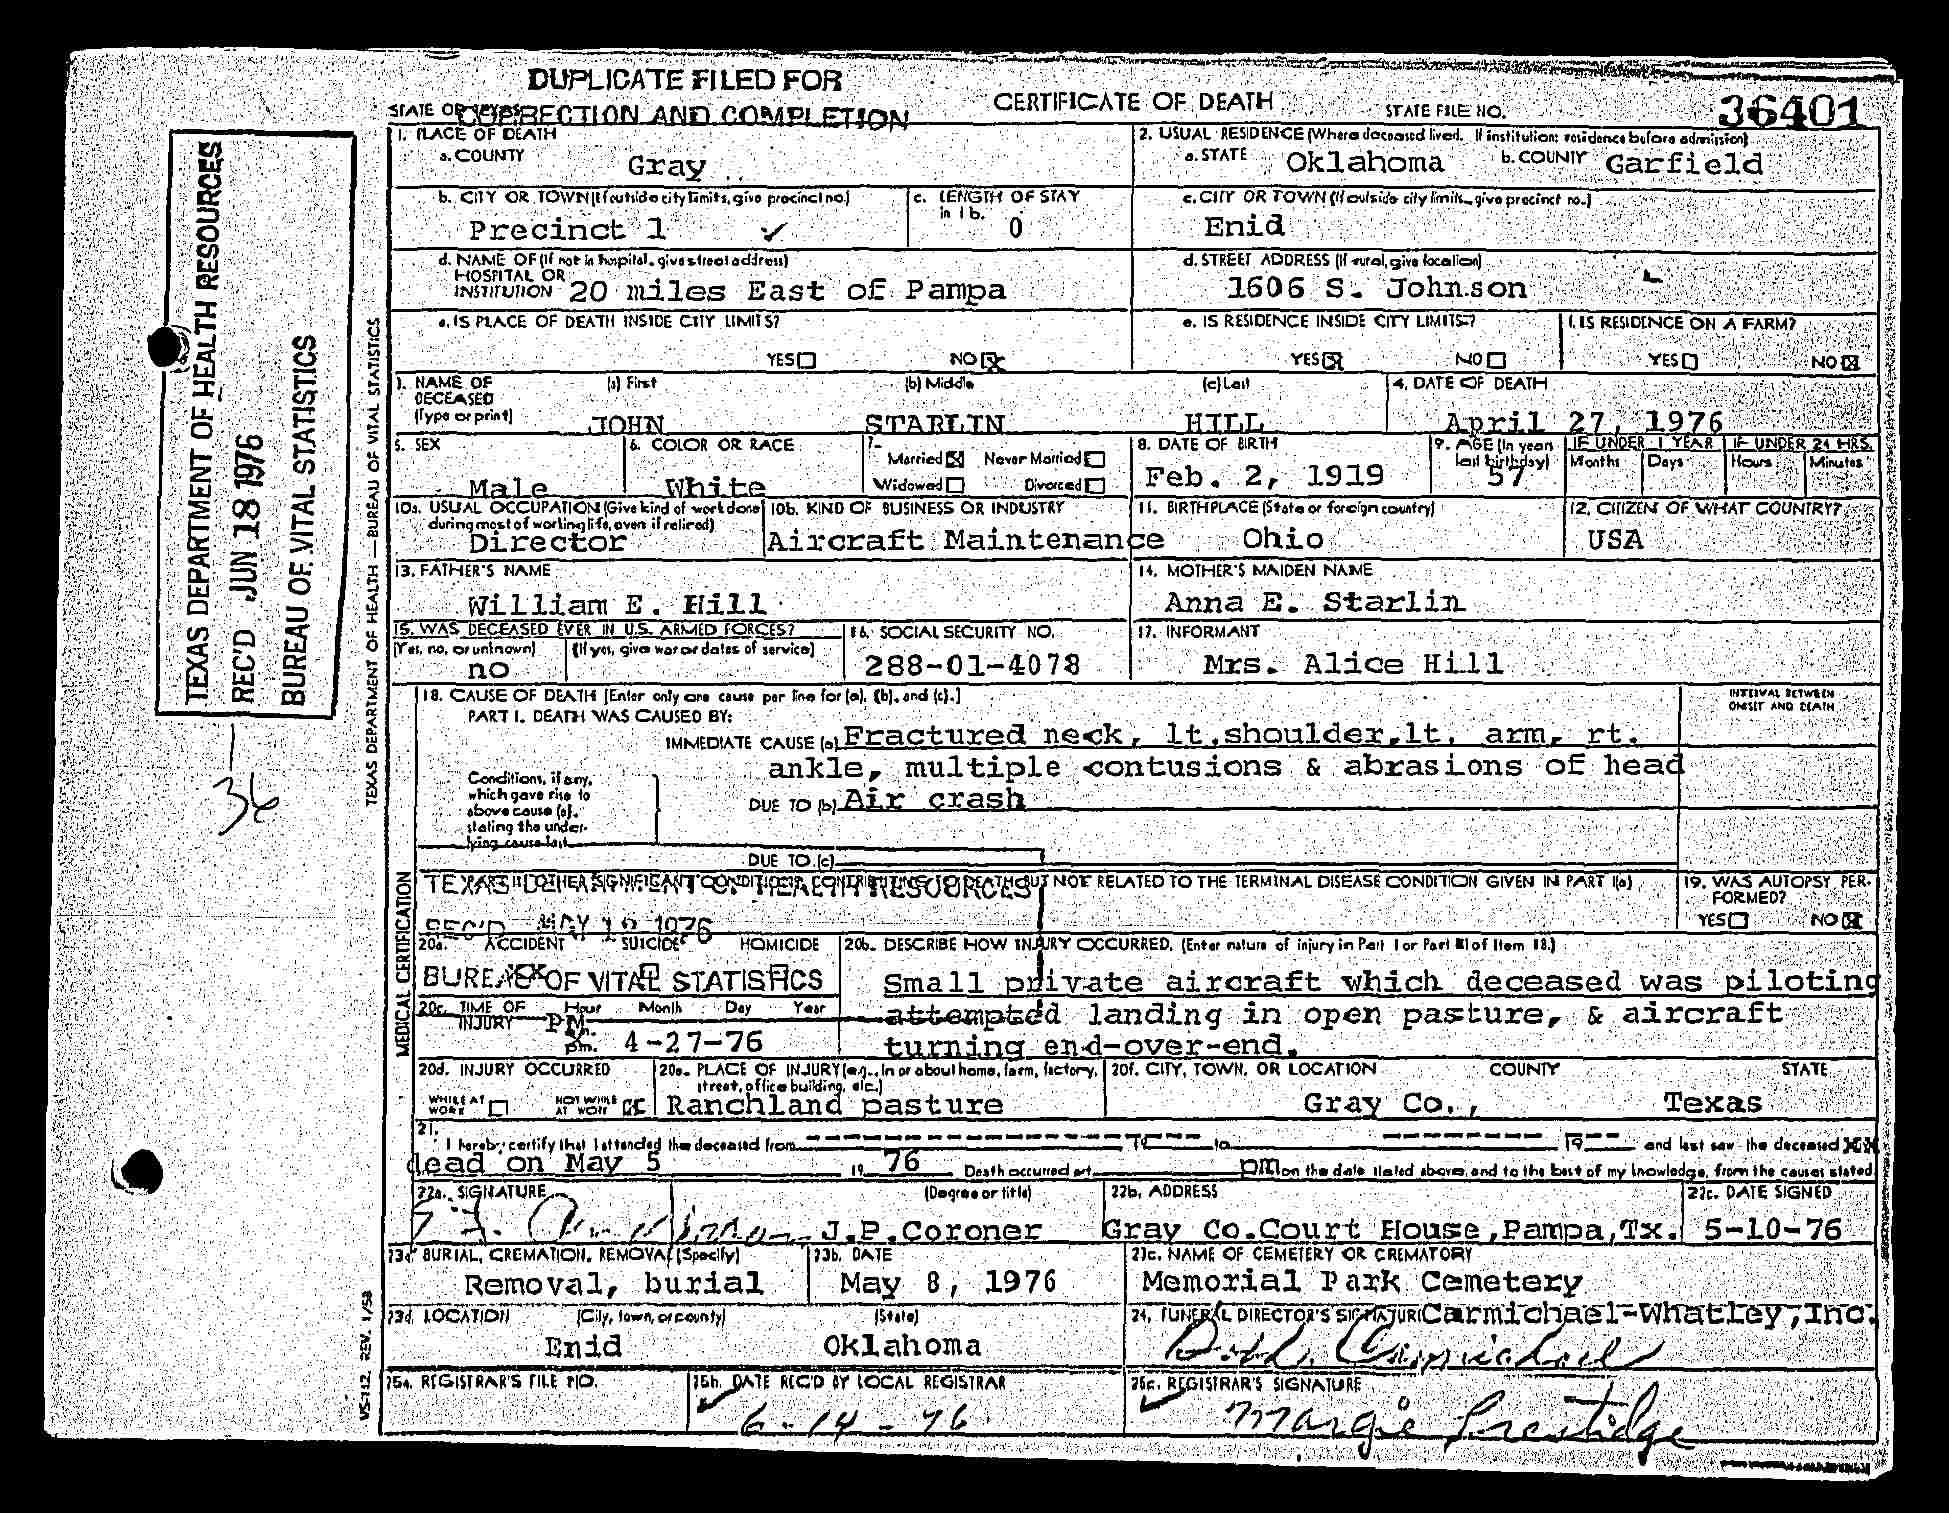 DUPLICATE FILED FOR
CORRECTION AND COMPLETION
STATE OF TEXAS
CERTIFICATE OF DEATH
STATE FILE NO. 36401
1. PLACE OF DEATH
a. COUNTY
Gray
2. USUAL RESIDENCE (Where deceased lived. If institution: residence before admission)
a. STATE Oklahoma b. COUNTY Garfield
b. CITY OR TOWN (If outside city limits, give precinct no.)
Precinct 1
c. LENGTH OF STAY
in 1b.
0
c. CITY OR TOWN (If outside city limits, give precinct no.)
Enid
d. NAME OF (If not in hospital, give street address)
HOSPITAL OR
INSTITUTION 20 miles East of Pampa
d. STREET ADDRESS (If rural, give location)
1606 S. Johnson
e. IS PLACE OF DEATH INSIDE CITY LIMITS?
YES NO X
e. IS RESIDENCE INSIDE CITY LIMITS?
YES X NO
f. IS RESIDENCE ON A FARM?
YES NO X
3. NAME OF
DECEASED
(Type or print)
(a) First
JOHN
(b) Middle
STARLIN
(c) Last
HILL
4. DATE OF DEATH
April 27, 1976
5. SEX
Male
6. COLOR OR RACE
White
7.
Married X Never Married
Widowed Divorced
8. DATE OF BIRTH
Feb. 2, 1919
9. AGE (In years
last birthday)
57
IF UNDER 1 YEAR
Months Days
IF UNDER 24 HRS.
Hours Minutes
10a. USUAL OCCUPATION (Give kind of work done
during most of working life, even if retired)
Director
10b. KIND OF BUSINESS OR INDUSTRY
Aircraft Maintenance
11. BIRTHPLACE (State or foreign country)
Ohio
12. CITIZEN OF WHAT COUNTRY?
USA
13. FATHER'S NAME
William E. Hill
14. MOTHER'S MAIDEN NAME
Anna E. Starlin
15. WAS DECEASED EVER IN U.S. ARMED FORCES?
(Yes, no, or unknown) (If yes, give war or dates of service)
no
16. SOCIAL SECURITY NO.
288-01-4078
17. INFORMANT
Mrs. Alice Hill
18. CAUSE OF DEATH [Enter only one cause per line for (a), (b), and (c).]
PART I. DEATH WAS CAUSED BY:
INTERVAL BETWEEN
ONSET AND DEATH
IMMEDIATE CAUSE (a) Fractured neck, lt.shoulder,lt. arm, rt.
ankle, multiple contusions & abrasions of head
Conditions, if any,
which gave rise to
above cause (a),
stating the under-
lying cause last.
DUE TO (b) Air crash
DUE TO (c)
PART II. OTHER SIGNIFICANT CONDITIONS CONTRIBUTING TO DEATH BUT NOT RELATED TO THE TERMINAL DISEASE CONDITION GIVEN IN PART I(a)
19. WAS AUTOPSY PER-
FORMED?
YES NO X
REC'D MAY 1976
BUREAU OF VITAL STATISTICS
20a. ACCIDENT SUICIDE HOMICIDE
20b. DESCRIBE HOW INJURY OCCURRED. (Enter nature of injury in Part I or Part II of Item 18.)
Small private aircraft which deceased was piloting
attempted landing in open pasture, & aircraft
turning end-over-end.
20c. TIME OF
INJURY
Hour Month Day Year
PM.
pm. 4-27-76
20d. INJURY OCCURRED
WHILE AT
WORK
NOT WHILE
AT WORK
20e. PLACE OF INJURY (e.g., in or about home, farm, factory,
street, office building, etc.)
Ranchland pasture
20f. CITY, TOWN, OR LOCATION COUNTY STATE
Gray Co., Texas
21.
I hereby certify that I attended the deceased from 19 to 19 and last saw the deceased
dead on May 5 19 76 Death occurred at pm on the date stated above, and to the best of my knowledge, from the causes stated
22a. SIGNATURE (Degree or title)
J.P.Coroner
22b. ADDRESS
Gray Co.Court House,Pampa,Tx.
22c. DATE SIGNED
5-10-76
23a. BURIAL, CREMATION, REMOVAL (Specify)
Removal, burial
23b. DATE
May 8, 1976
23c. NAME OF CEMETERY OR CREMATORY
Memorial Park Cemetery
23d. LOCATION (City, town, or county) (State)
Enid Oklahoma
24. FUNERAL DIRECTOR'S SIGNATURE Carmichael-Whatley,Inc.
Carmichael
25a. REGISTRAR'S FILE NO.
25b. DATE REC'D BY LOCAL REGISTRAR
6-14-76
25c. REGISTRAR'S SIGNATURE
Margie Prestidge
TEXAS DEPARTMENT OF HEALTH RESOURCES
REC'D JUN 18 1976
BUREAU OF VITAL STATISTICS
36
TEXAS DEPARTMENT OF HEALTH — BUREAU OF VITAL STATISTICS
MEDICAL CERTIFICATION
VS-112 REV. 1/58